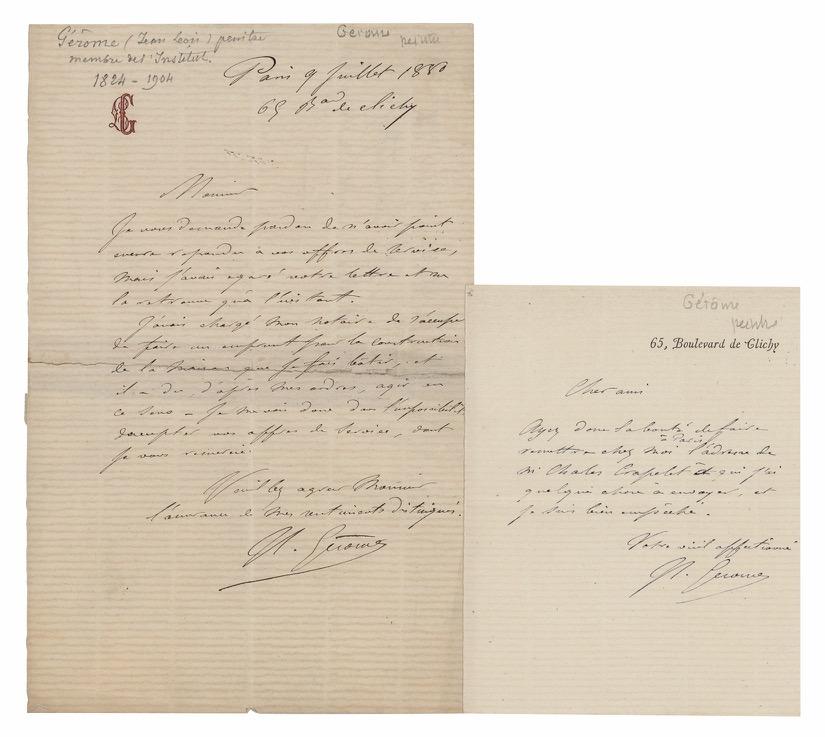 Gérôme (Jean Léon) peintre
membre de l'Institut.
1824 - 1904
Gérome
peintre
Paris 9 Juillet 1880
65 Bard de clichy
Monsieur
Je vous demande pardon de n'avoir point
encore repondu à vos offres de service,
mais j'avais egaré votre lettre et ne
la retrouve qu'à l'instant.
J'avais chargé mon notaire de s'occuper
de faire un emprunt pour la construction
de la maison que je fais bâtir, et
il a du, d'après mes ordres, agir en
ce sens - Je me vois donc dans l'impossibilité
d'accepter vos offres de service, dont
je vous remercie.
Veuillez agreer Monsieur
l'assurance de mes sentiments distingués.
JL. Gérome
Gérôme
peintre
65, Boulevard de Clichy
Cher ami
Ayez donc la bonté de faire
remettre chez moi à Paris l'adresse de
Mr Charles Crapelet à qui j'ai
quelque chose à envoyer, et
je suis bien empêché.
Votre vieil affectionné
JL. Gerome